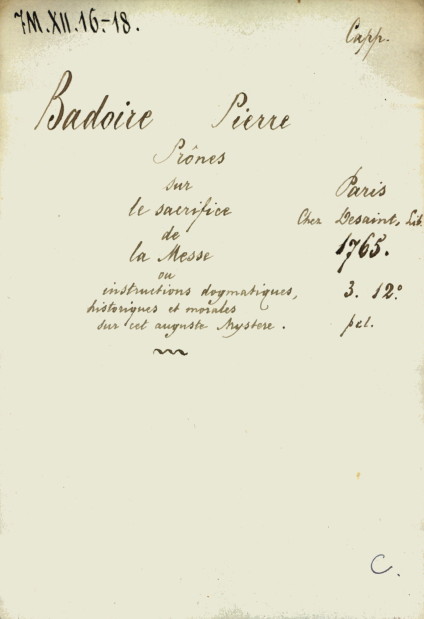 7M.XII.16.-18.
Capp.
Badoire Pierre
Prônes
sur
le sacrifice
de
la Messe
ou
instructions dogmatiques,
historiques et morales
sur cet auguste Mystere.
Paris
Chez Desaint, Lib.
1765.
3. 12.º
pel.
C.